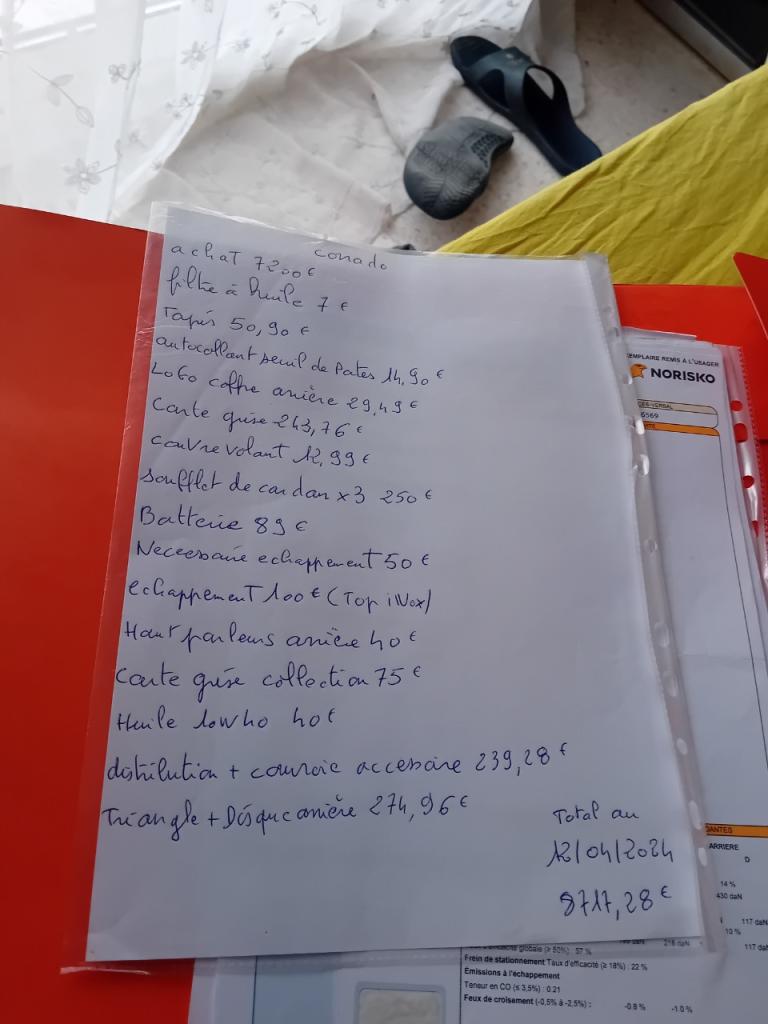 corrado
achat 7200€
filtre à huile 7€
Tapis 50,90€
autocollant seuil de Portes 14,90€
LoGo coffre arrière 29,49€
Carte grise 243,76€
couvre volant 12,99€
soufflet de cardan x3 250€
Batterie 89€
Necessaire echappement 50€
echappement 100€ (Top iNox)
Haut parleurs arrière 40€
Carte grise collection 75€
Huile 10W40 40€
distribution + courroie accessoire 239,28€
Triangle + Disque arrière 274,96€
Total au
12/04/2024
8717,28€
EMPLAIRE REMIS A L'USAGER
NORISKO
ES-VERBAL
6569
DANTES
ARRIERE
D
14 %
430 daN
117 daN
10 %
117 da
globale (≥ 50%) : 57 %
218 daN
Frein de stationnement Taux d'efficacité (≥ 18%) : 22 %
Émissions à l'échappement
Teneur en CO (≤ 3,5%) : 0.21
Feux de croisement (-0,5% à -2,5%) : -0.8 % -1.0 %